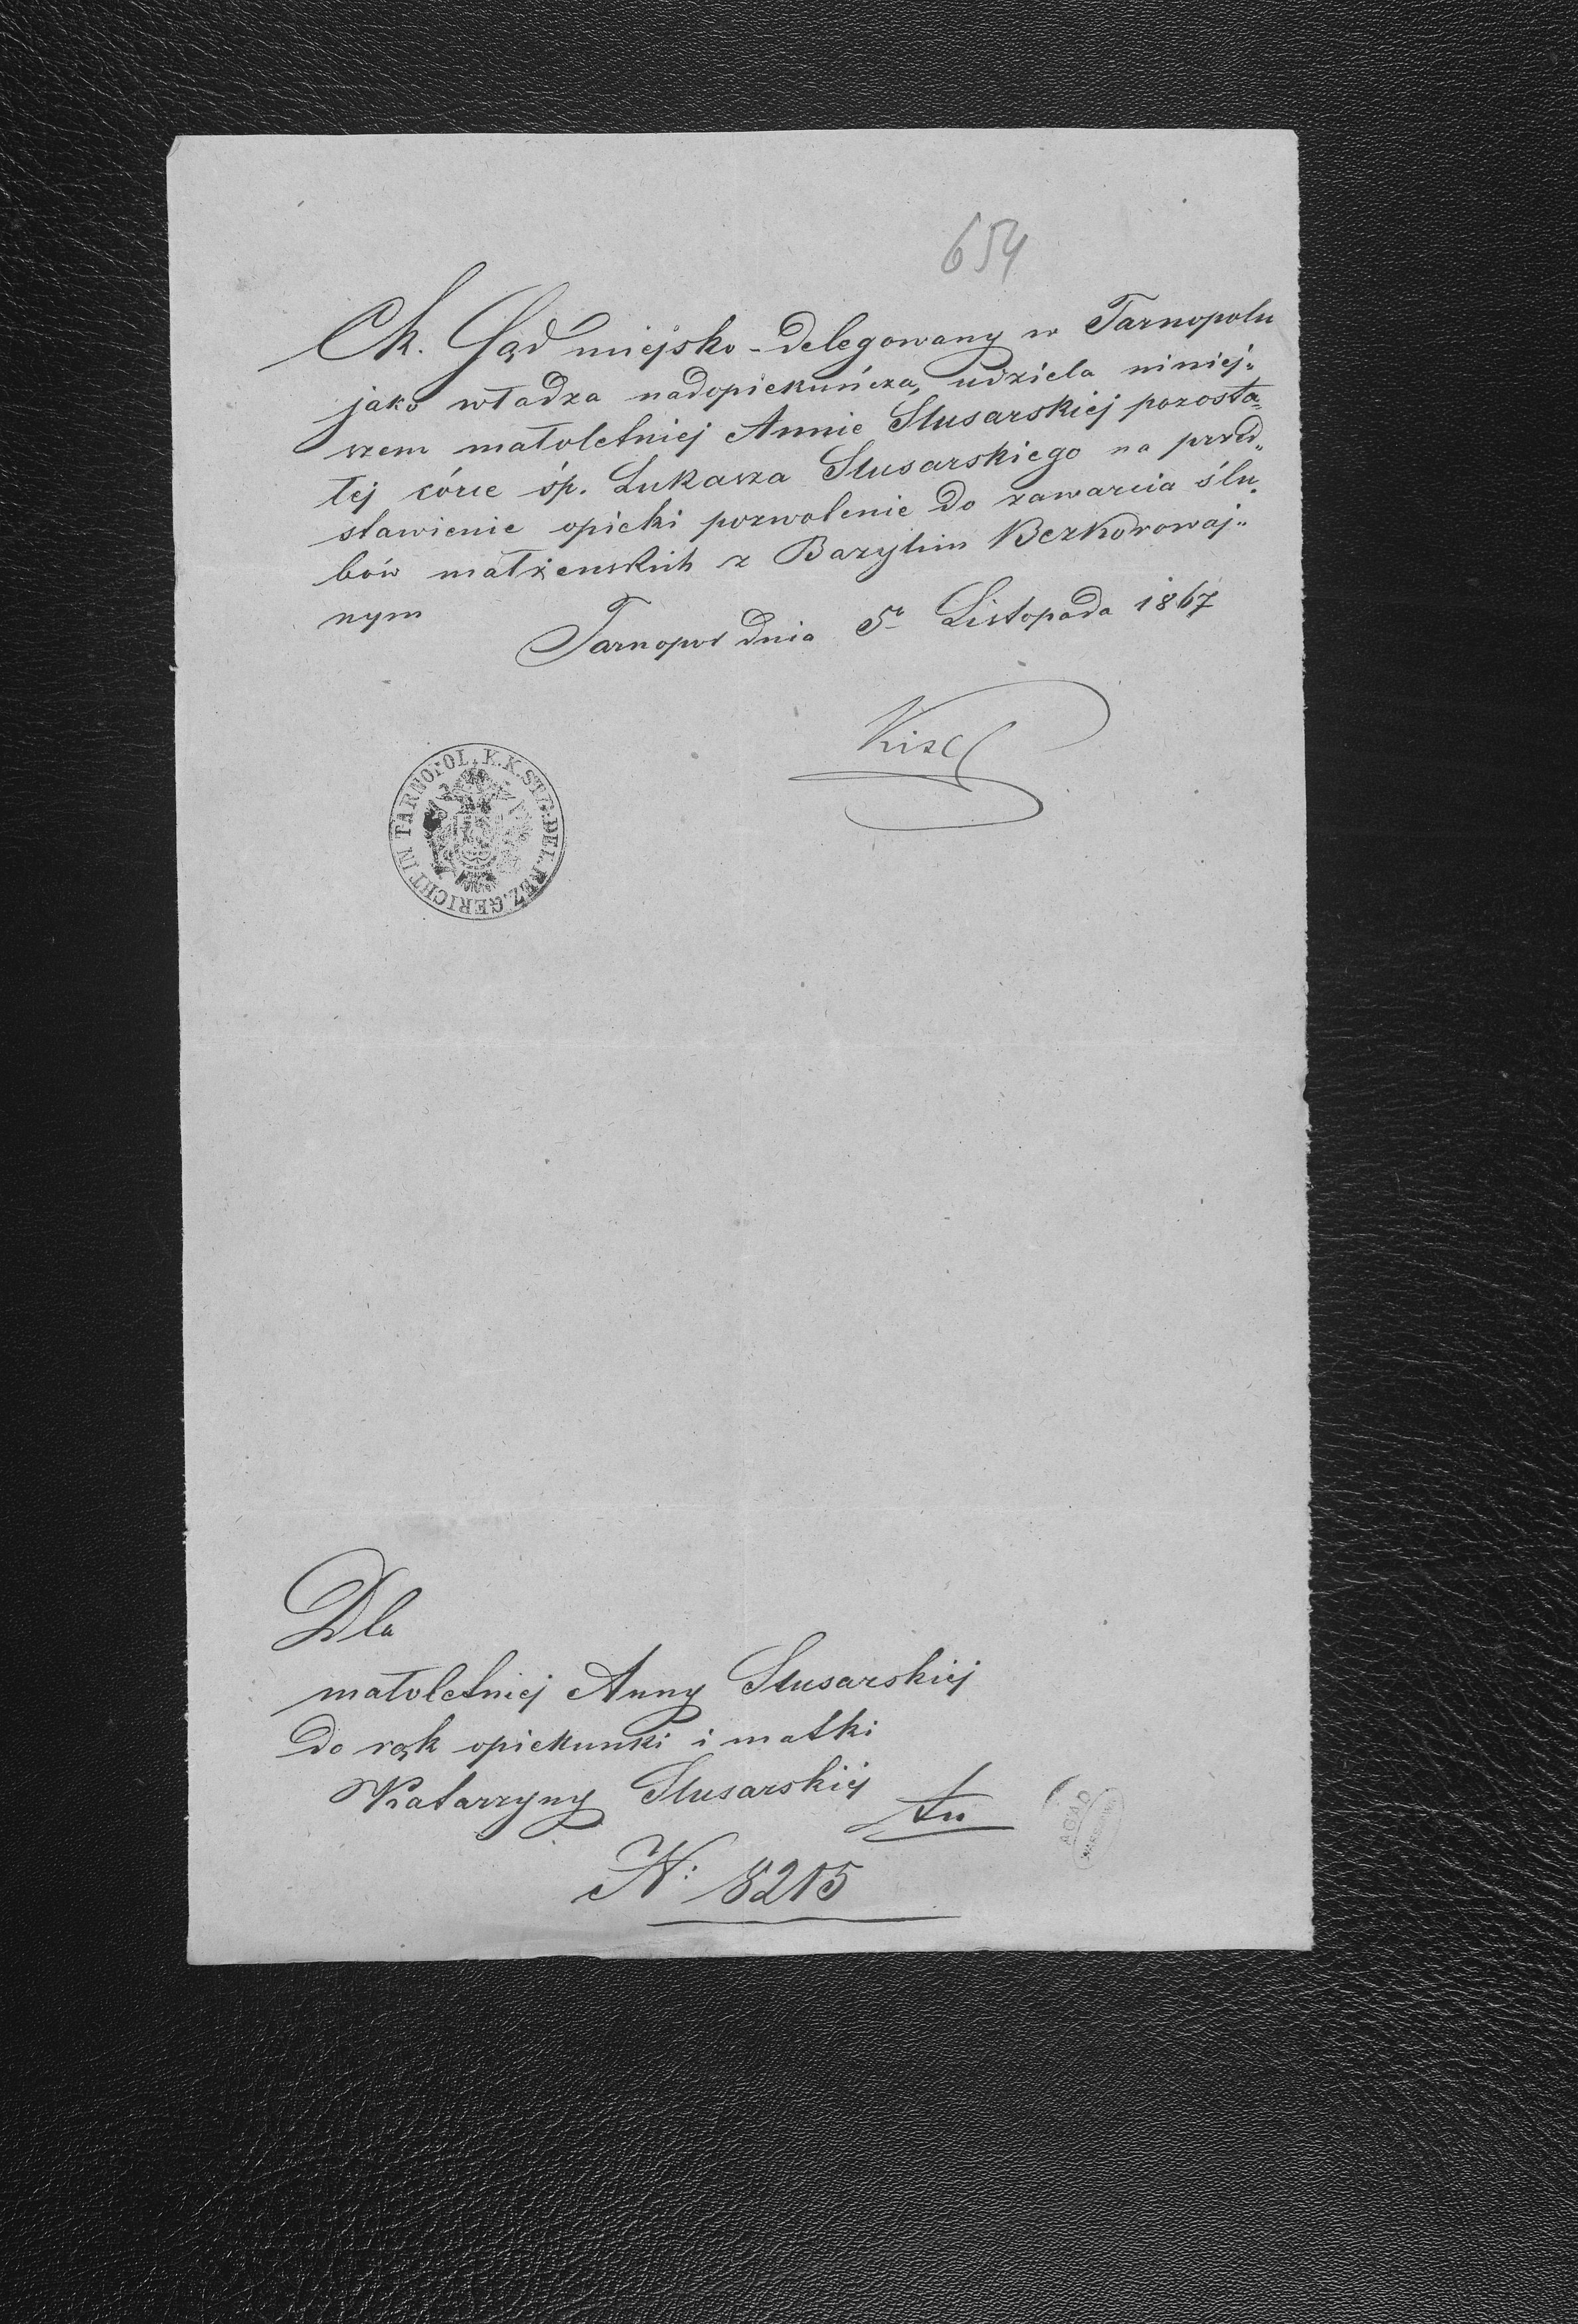 654
Ck. Sąd miejsko-delegowany w Tarnopolu
jako władza nadopiekuńcza, udziela niniej„
szem małoletniej Annie Slusarskiej pozosta„
łej córce śp. Łukasza Slusarskiego na przed„
stawienie opieki pozwolenie do zawarcia ślu„
bów małżenskich z Bazylim Bezkorowaj„
nym
Tarnopol dnia 5º Listopada 1867
K.K. STG. DEL. BEZ. GERICHT IN TARNOPOL
Dla
małoletniej Anny Slusarskiej
do rąk opiekunki i matki
Katarzyny Slusarskiej
tu
AGAD
WARSZAWA
N: 8215